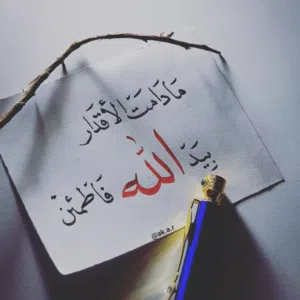 مَادَامَتْ الأَقْدَار
بِيَدِ اللّٰه فَاطْمَئِن
@ak.a.r